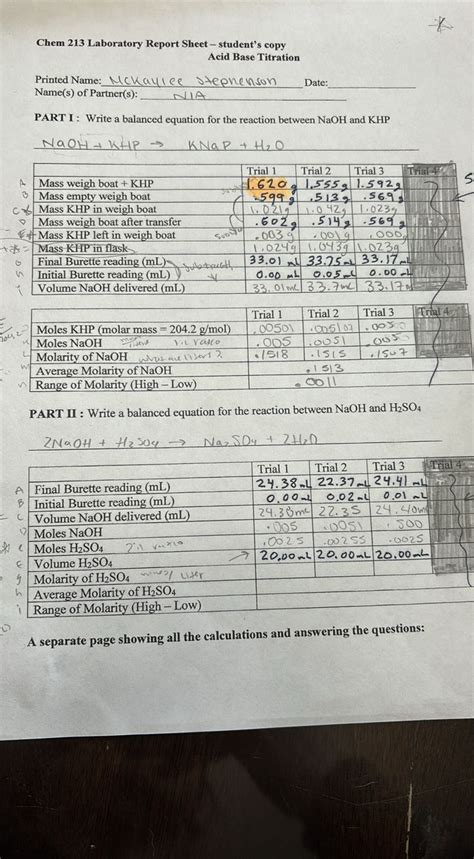 Chem 213 Laboratory Report Sheet – student's copy
Acid Base Titration
Printed Name: McKaylee Stephenson Date:
Name(s) of Partner(s): N/A
PART I : Write a balanced equation for the reaction between NaOH and KHP
NaOH + KHP → KNaP + H2O
Trial 1 Trial 2 Trial 3 Trial 4
Mass weigh boat + KHP 1.620g 1.555g 1.592g
Mass empty weigh boat .599g .513g .569g
Mass KHP in weigh boat 1.021g 1.042g 1.023g
Mass weigh boat after transfer .602g .514g .569g
Mass KHP left in weigh boat .003g .001g .000g
Mass KHP in flask 1.024g 1.043g 1.023g
Final Burette reading (mL) 33.01 mL 33.75 mL 33.17 mL
Initial Burette reading (mL) 0.00 mL 0.05 mL 0.00 mL
Volume NaOH delivered (mL) 33.01mL 33.7mL 33.17
Trial 1 Trial 2 Trial 3 Trial 4
Moles KHP (molar mass = 204.2 g/mol) .00501 .005102 .0050
Moles NaOH 1:1 ratio .005 .0051 .005
Molarity of NaOH .1518 .1515 .1507
Average Molarity of NaOH .1513
Range of Molarity (High – Low) .0011
PART II : Write a balanced equation for the reaction between NaOH and H2SO4
2NaOH + H2SO4 → Na2SO4 + 2H2O
Trial 1 Trial 2 Trial 3 Trial 4
A Final Burette reading (mL) 24.38mL 22.37mL 24.41mL
B Initial Burette reading (mL) 0.00mL 0.02mL 0.01mL
C Volume NaOH delivered (mL) 24.38mL 22.35 24.40mL
Moles NaOH .005 .0051 .500
e Moles H2SO4 2:1 ratio .0025 .00255 .0025
F Volume H2SO4 → 20.00mL 20.00mL 20.00mL
g Molarity of H2SO4
h Average Molarity of H2SO4
i Range of Molarity (High – Low)
A separate page showing all the calculations and answering the questions: